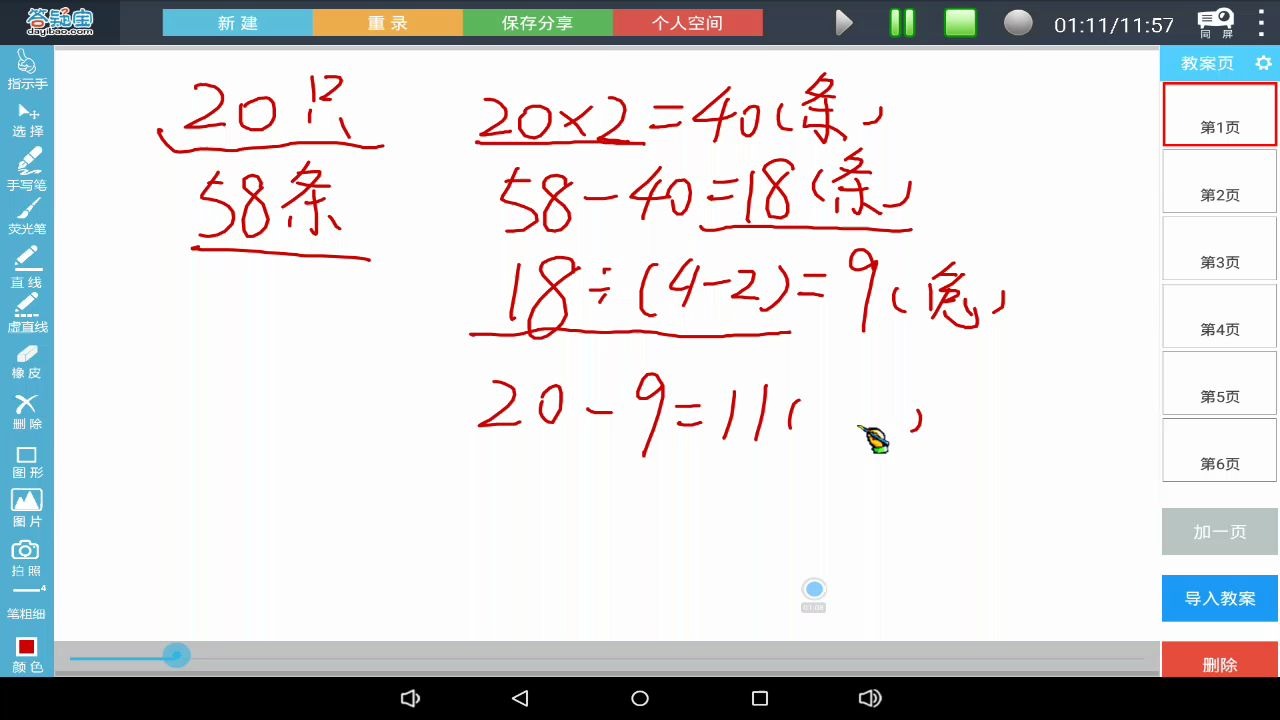 答疑宝
dayibao.com
新建
重录
保存分享
个人空间
01:11/11:57
同屏
指示手
选择
手写笔
荧光笔
直线
虚直线
橡皮
删除
图形
图片
拍照
4
笔粗细
颜色
20只
58条
20×2=40(条)
58-40=18(条)
18÷(4-2)=9(兔)
20-9=11( )
01:08
教案页
第1页
第2页
第3页
第4页
第5页
第6页
加一页
导入教案
删除